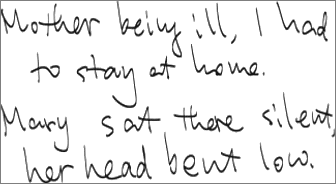 Mother being ill, I had
to stay at home.
Mary sat there silent,
her head bent low.